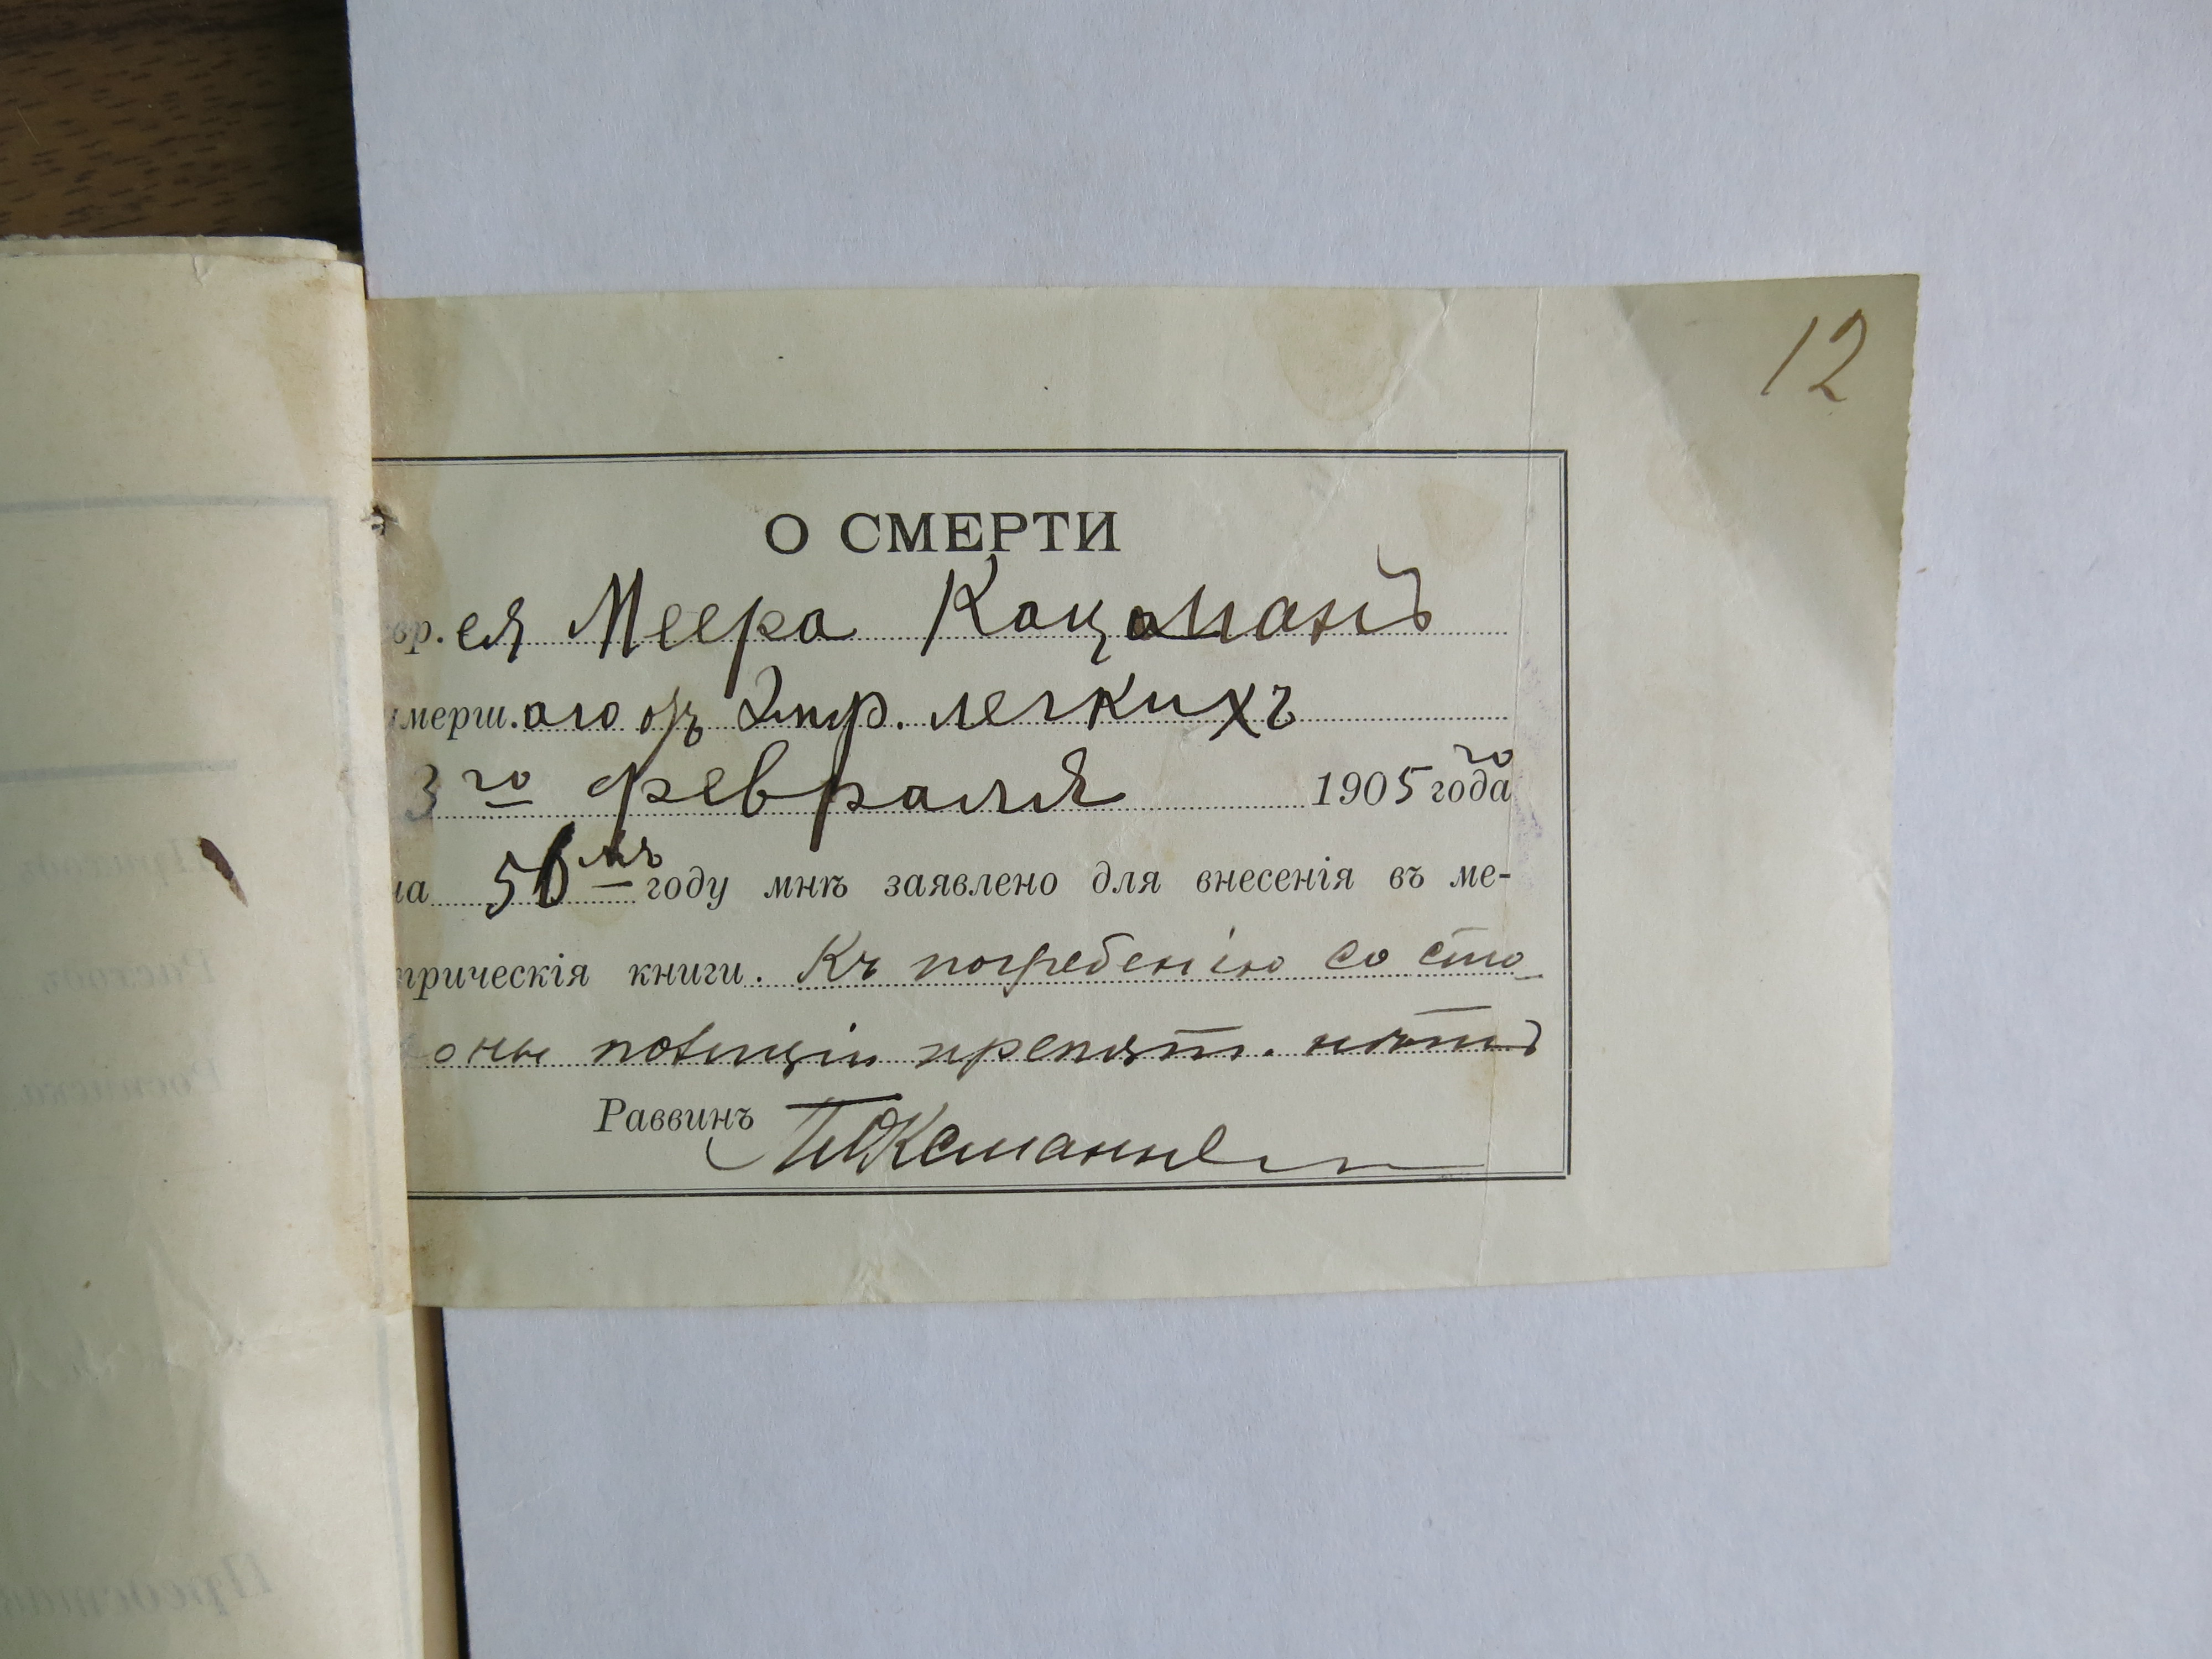 12
О СМЕРТИ
вр. ея Меера Кацоманъ
мерш. аго отъ Эмф. легкихъ
3 го февраля 1905 го года
на 50 мъ году мнѣ заявлено для внесенія въ ме-
трическія книги. Къ погребенію со сто-
роны полиціи препятст. нѣтъ
Раввинъ